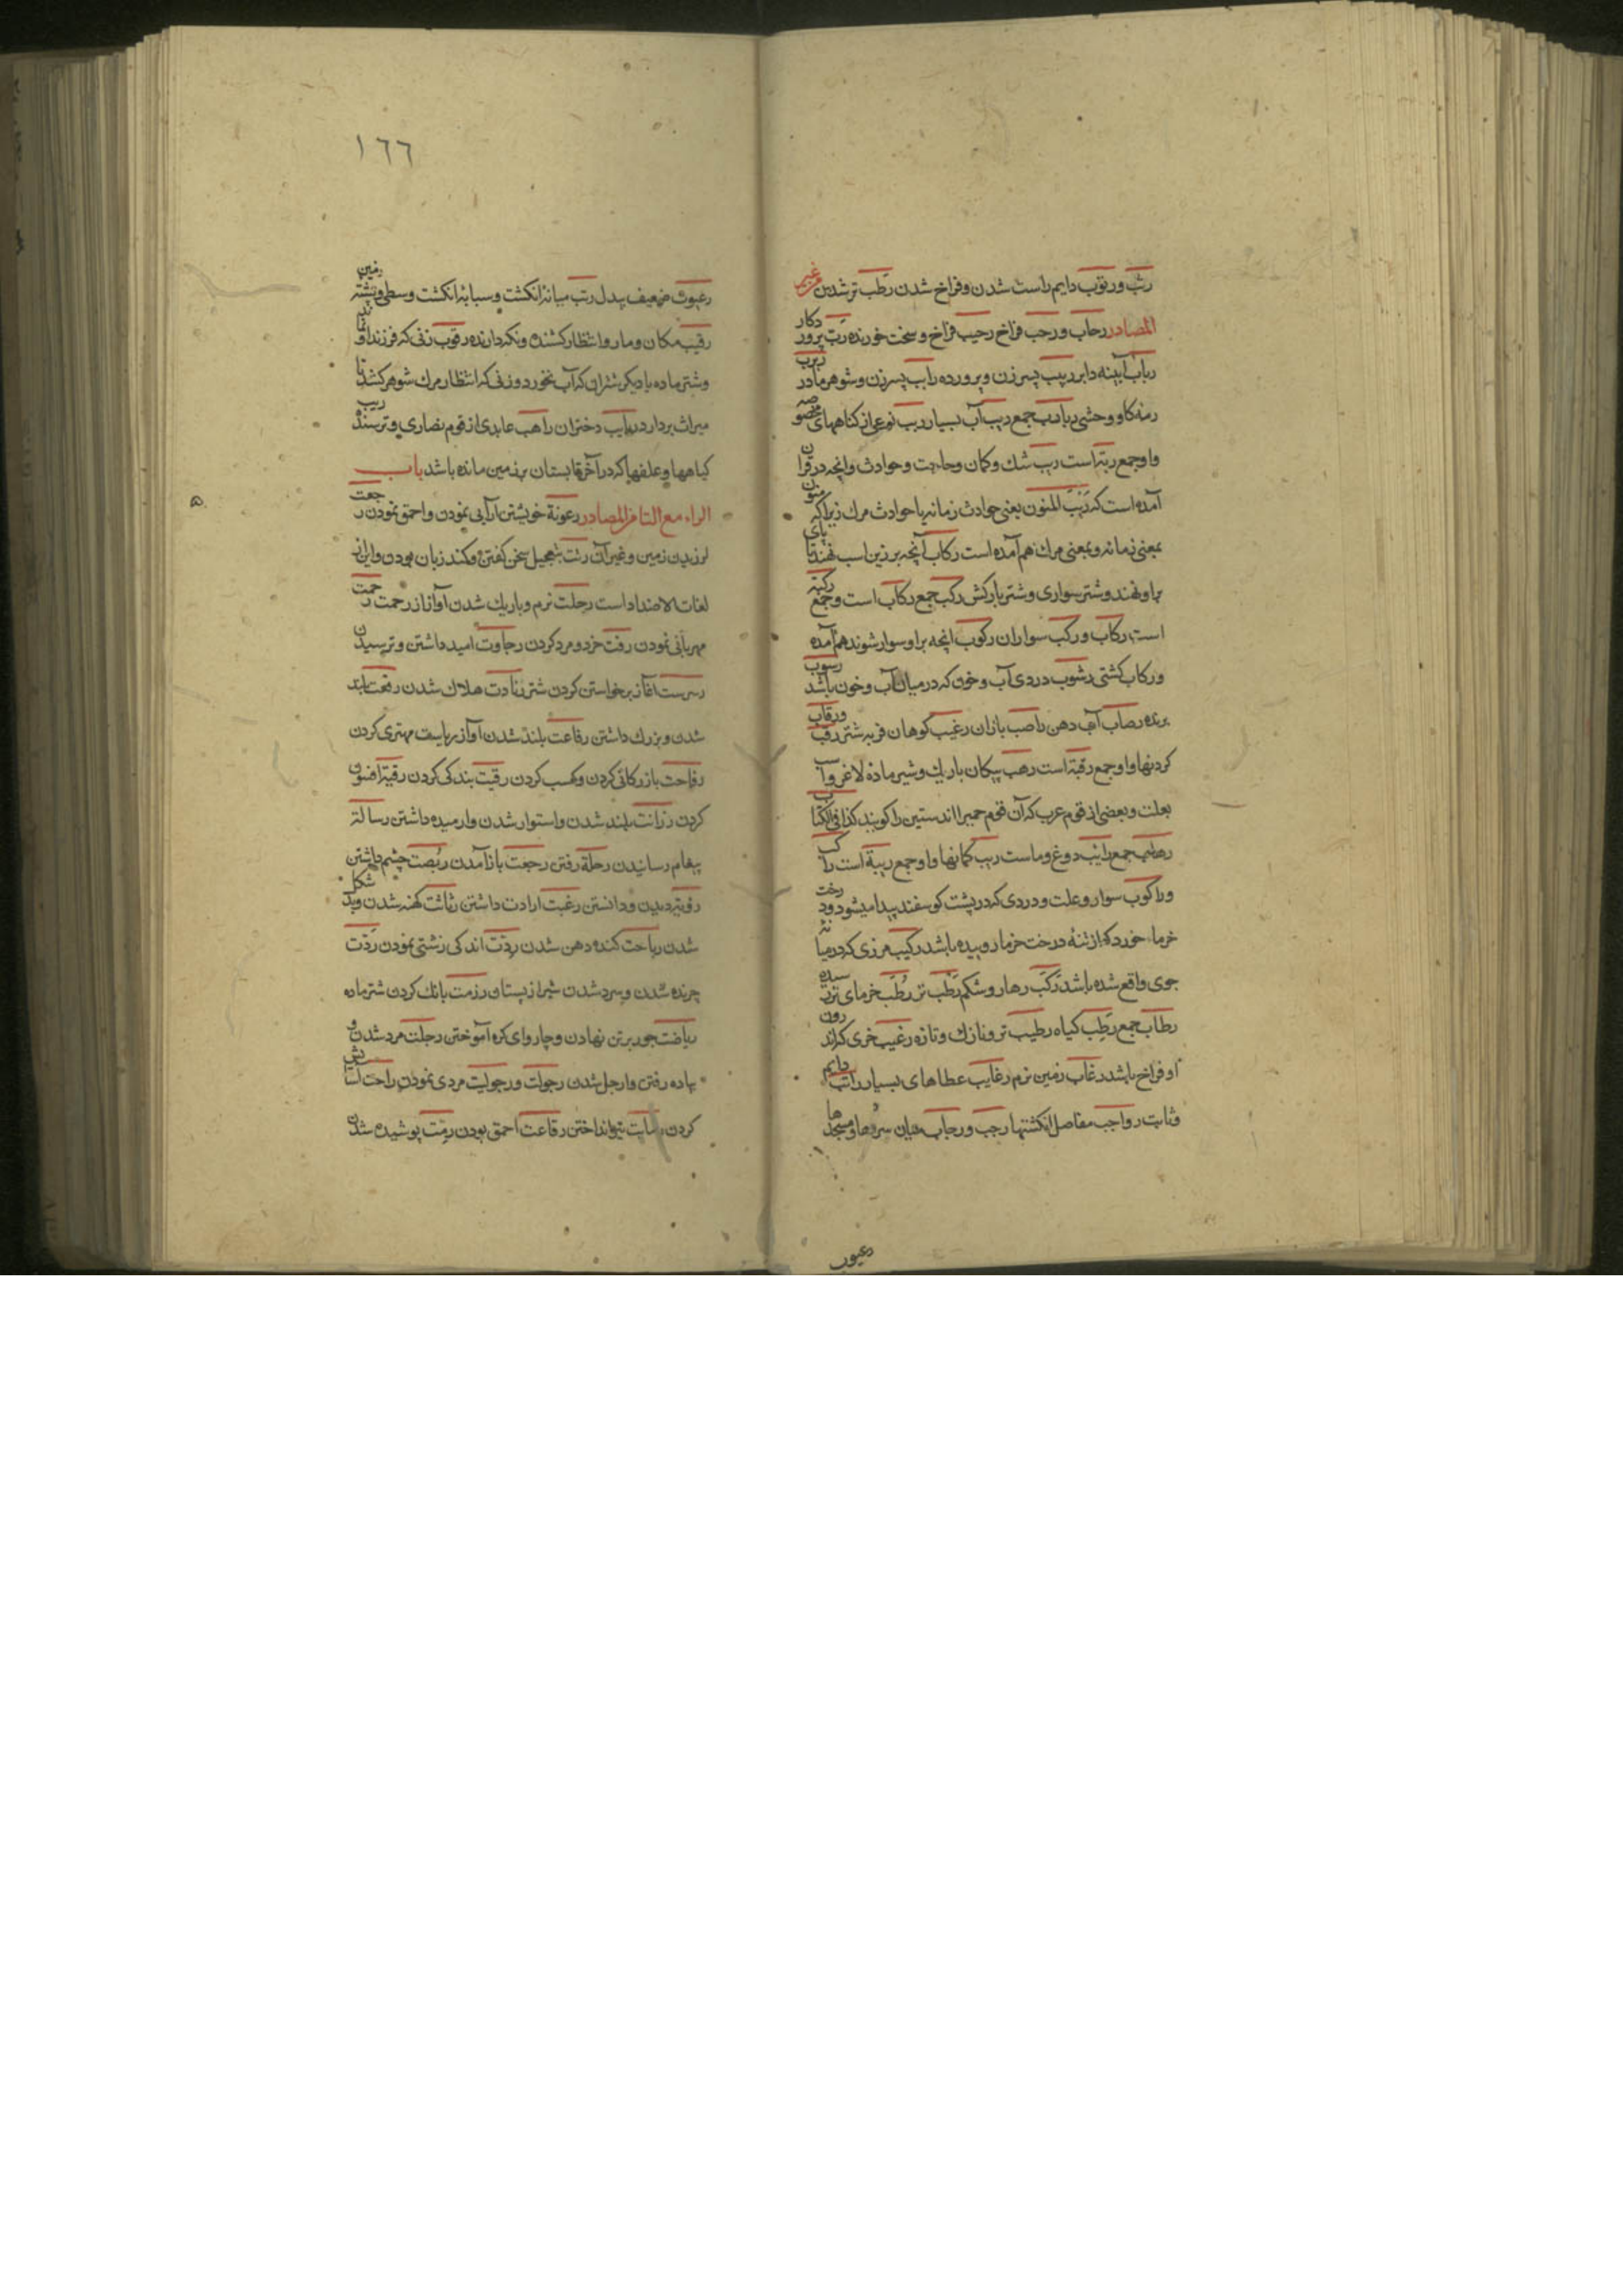 رتب ورتوب دایم راست شدن وفراخ شدن رطب تر شدن من غیر
المصادر رحاب ورحب فراخ رحیب فراخ و سخت خورنده رب پرورد کار
رباب آیینه دابر ربیب پسر زن و پرورده راب پسر زن و شوهر مادر ربرب
رمه کاو وحشی ربارب جمع ربب آب بسیار ربب نوعی از کناههای مخصوصه
واو جمع ربة است ریب شک وکمان وحاجت وحوادث وانچه در قران
آمده است که ریب المنون یعنی حوادث زمانه یا حوادث مرک زیرا که منون
بمعنی زمانه و بمعنی مرک هم آمده است رکاب آنچه بر زین اسب نهند تا پای
براو نهند و شتر سواری و شتر بارکش رکب جمع رکاب است وجمع رکبة
است رکاب ورکب سواران رکوب انچه براو سوار شوند هم آمده
ورکاب کشتی رشوب دردی آب و خون که در میان آب و خون باشد رسوب
برنده رضاب آب دهن راصب بازان رغیب کوهان فربه شتر رقب ورقاب
کردنها واو جمع رقبة است رهب پیکان باریک و شیر ماده لاغر وآب
بعلت و بعضی از قوم عرب که آن قوم حمیرا اند ستین را کویند کذا فی الکتاب
جمع رایب دوغ وماست ریب کمانها واو جمع ریبة است راکب
وراکوب سوار و علت و دردی که در پشت کوسفند پیدا میشود ودرخت
خرما خورد که از تنهٔ درخت خرما روییده باشد رکیب مرزی که در میانه
جوی واقع شده باشد رکب رهار وشکم رطب تر رطب خرمای تر رسیده
رطاب جمع رطب کیاه رطیب تر و نازک و تازه رغیب خری که اندرون
او فراخ باشد رغاب زمین نرم رغایب عطاهای بسیار راتب دایم
وثابت رواجب مفاصل انکشتها رجب ورجاب میان سروها ومسجدها
رعبوب
١٦٦
رعبوب ضعیف بیدل رتب میانهٔ انکشت وسبابه انکشت وسطی وپشته زمین
رقیب مکان ومار وانتظار کشنده ونکه دارنده رقوب زنی که فرزند او نماند
وشتر ماده با دیکر شتران که آب نخورد وزنی که انتظار مرک شوهر کشد تا
میراث بردارد ربایب دختران راهب عابدی از قوم نصاری وترسنده ریب
کیاهها وعلفها که در آخر تابستان بر زمین مانده باشد باب
الراء مع التا من المصادر رعونة خویشتن آرایی نمودن واحمق نمودن رجعت
لرزیدن زمین وغیر آن رتت بتعجیل سخن کفتن وکند زبان بودن واین از
لغات الاضداد است رجلت نرم وباریک شدن آواز از رحمت رحمت
مهربانی نمودن رفت خرد و مرد کردن رجاوت امید داشتن وترسیدن
رسرست آغاز برخواستن کردن شتر رتادت هلاک شدن رفعت بلند
شدن وبزرک داشتن رفاعت بلند شدن آواز ریاست مهتری کردن
رقاحت بازرکانی کردن وکسب کردن رقیت بندکی کردن رقیة افسون
کردن رزانت بلند شدن واستوار شدن وارمیده داشتن رسالة
پیغام رسانیدن رحلة رفتن رجعت باز آمدن ربصت چشم داشتن
رویة دیدن ودانستن رغبت ارادت داشتن رثاثت کهنه شدن وبد شکل
شدن ریاحت کنده دهن شدن ردت اندکی زشتی نمودن ردت
چرنده شدن وسرد شدن شیر از پستان رزمت بانک کردن شتر ماده
ریاضت جور بر تن نهادن وچاروای کره آموختن رجلت مرد شدن و
پیاده رفتن وارجل شدن رجولت ورجولیت مردی نمودن راحت آسایش
کردن رمایت تیر انداختن رقاعت احمق بودن رمت پوشیده شدن